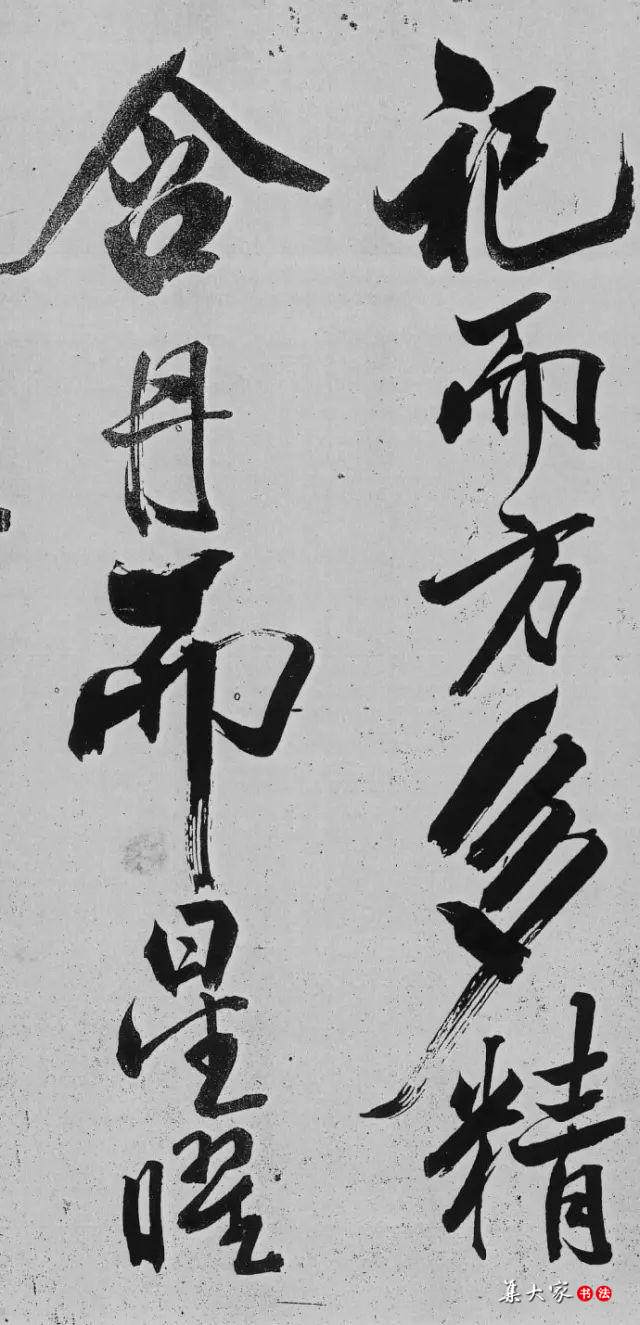 祀而方多精
含丹而星曜
集大家书法